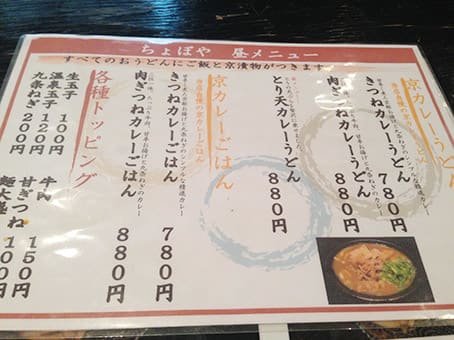 ちょぼや 昼メニュー
すべてのおうどんにご飯と京漬物がつきます
京カレーうどん
きつねカレーうどん 780円
肉きつねカレーうどん 880円
とり天カレーうどん 880円
京カレーごはん
きつねカレーごはん 780円
肉きつねカレーごはん 880円
各種トッピング
生玉子 100円
温泉玉子 120円
九条ねぎ 200円
牛肉
甘ぎつね 150円
麺大盛 100円